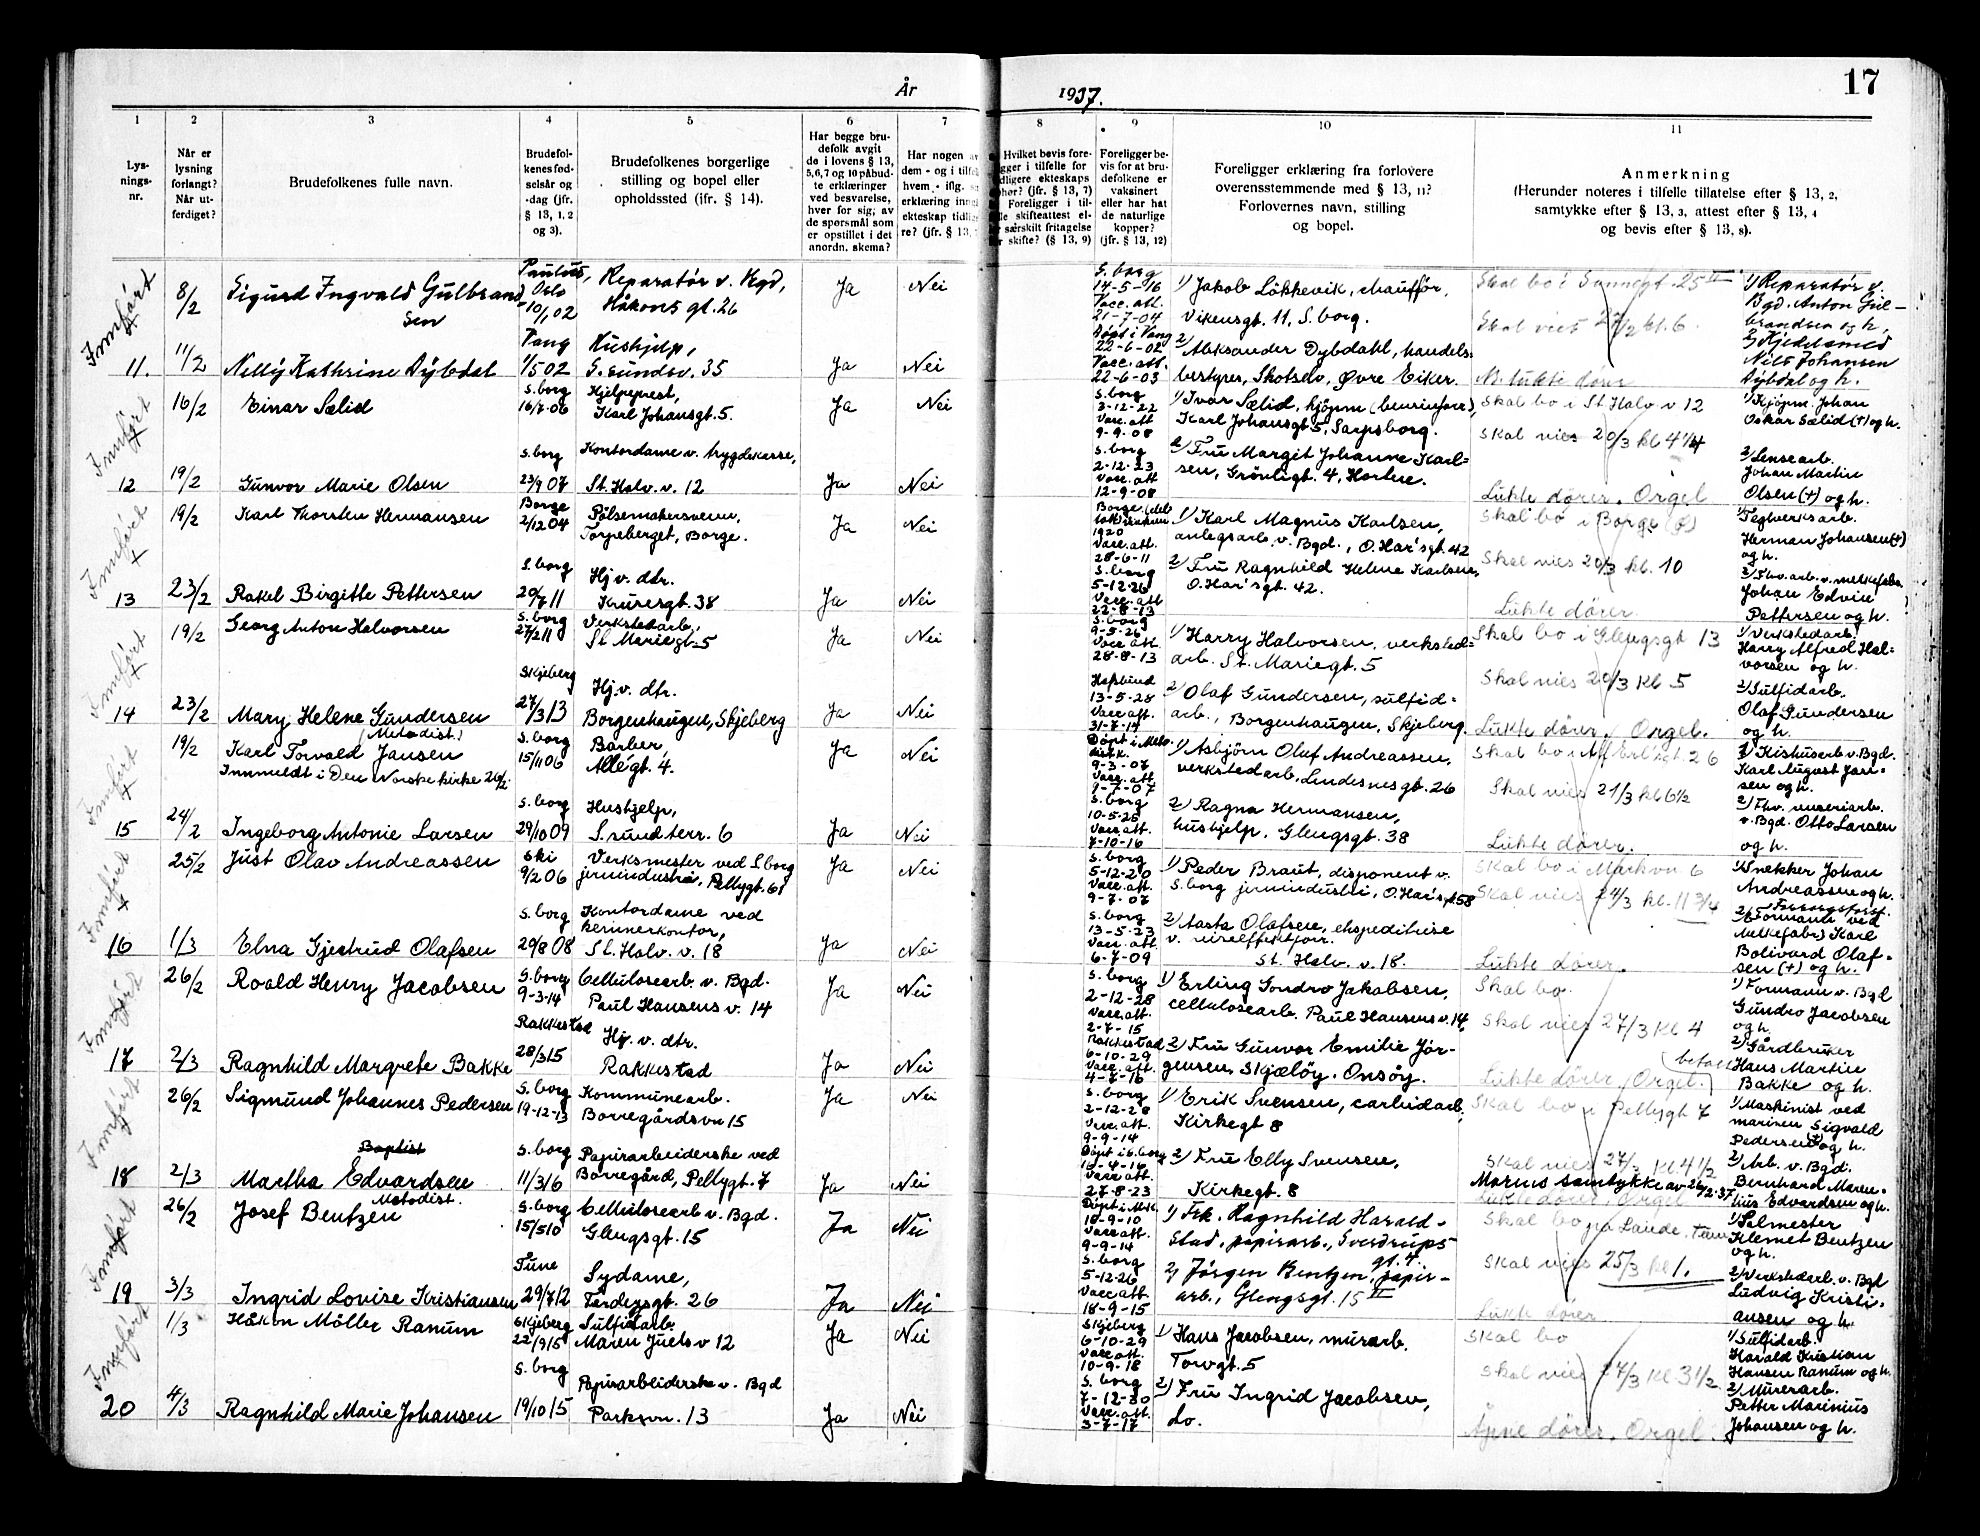 År 1937.
17
1 2 3 4 5 6 7 8 9 10 11
Lysningsnr.
Når er lysning forlangt? Når utferdiget?
Brudefolkenes fulle navn.
Brudefolkenes fødselsår og -dag (jfr. § 13, 1, 2 og 3).
Brudefolkenes borgerlige stilling og bopel eller opholdssted (ifr. § 14).
Har begge brudefolk avgit de i lovens § 13, 5,6,7 og 10 påbudte erklæringer ved besvarelse, hver for sig, av de spørsmål som er opstillet i det anordn. skema?
Har nogen av dem - og i tilf hvem - iflg. s erklæring inng ekteskap tidlig re? (jfr. § 13,
Hvilket bevis fore-
gger i tilfelle for
dligere ekteskaps
hør? (jfr. § 13, 7)
Foreligger i til-
le skifteattest el-
særskilt fritagelse
r skifte? (§ 13, 9)
Foreligger bevis for at brudefolkene er vaksinert eller har hat de naturlige kopper? (jfr. § 13, 12)
Foreligger erklæring fra forlovere overensstemmende med § 13, 11? Forlovernes navn, stilling og bopel.
Anmerkning
(Herunder noteres i tilfelle tillatelse efter § 13, 2,
samtykke efter § 13, 3, attest efter § 13, 4
og bevis efter § 13, 8).
Innført
8/2 Sigurd Ingvald Gulbrandsen
Oslo 10/1 02
Reparatør v. Bgd, Håkons gt. 26
Ja Nei
S. borg 14-5-16 Vacc. att. 21-7-04
1) Jakob Løkkevik, chauffør, Vikensgt. 11, S. borg.
Skal bo i Sannesgt. 25 II
Skal vies 27/2 kl. 6.
1) Reparatør v. Bgd. Anton Gulbrandsen og h.
11. 11/2 Nelly Kathrine Dybdal
Vang 1/5 02
Hushjelp, S. sundsv. 35
Ja Nei
Døpt i Vang 22-6-02 Vacc. att. 22-6-03
2) Aleksander Dybdahl, handelsbestyrer, Skotselv, Øvre Eiker.
N. lukte dører
2) Kjedelsmed Nils Johansen Dybdal og h.
Innført
16/2 Einar Sælid
S. borg 16/7-06
Hjelpeprest, Karl Johansgt. 5.
Ja Nei
S. borg 3-12-22 Vacc. att 9-9-08
1) Ivar Sælid, kjøpm (bensinforr), Karl Johansgt 5, Sarpsborg.
Skal bo i St Halv. v 12
Skal vies 20/3 kl 4 1/4
1) Kjøpm. Johan Oskar Sælid (+) og h.
12 19/2 Gunvor Marie Olsen
S. borg 23/9 07
Kontordame v. trygdekasse, St. Halv. v. 12
Ja Nei
S. borg 2-12-23 Vacc. att 12-9-08
2) Fru Margit Johanne Karlsen, Grønligt. 4, Horten.
Lukte dører. Orgel
2) Lensearb. Johan Martin Olsen (+) og h.
Innført
19/2 Karl Thorsten Hermansen
Borge 2/12 04
Pølsemakersvenn, Torpeberget, Borge.
Ja Nei
1920 Vacc. att. 28-6-11
1) Karl Magnus Karlsen, anlegsarb. v. Bgd., O. Har's gt. 42
Skal bo i Borge
Skal vies 20/3 kl. 10
1) Teglverksarb. Herman Johansen (+) og h.
13 23/2 Rakel Birgitte Pettersen
S. borg 20/7 11
Hj v. dtr. Krusesgt. 38
Ja Nei
S. borg 5-12-26 Vacc. att 22-8-13
2) Fru Ragnhild Helene Karlsen, O. Har'sgt. 42.
Lukte dører.
2) Fhv. arb. v. melkefabr. Johan Edvin Pettersen og h.
Innført
19/2 Georg Anton Halvorsen
S. borg 27/2 11
Verkstedarb, St Mariegt 5
Ja Nei
S. borg 9-5-26 Vacc att. 28-8-13
1) Harry Halvorsen, verkstedarb. St. Mariegt. 5
Skal bo i Glengsgt 13
Skal vies 20/3 kl 5
1) Verkstedarb. Harry Alfred Halvorsen og h.
14 23/2 Mary Helene Gundersen
Skjeberg 27/3 13
Hj. v. dtr. Borgenhaugen, Skjeberg
Ja Nei
Hafslund 13-5-28 Vacc att. 31-7-14
2) Olaf Gundersen, sulfidarb., Borgenhaugen, Skjeberg.
Lukte dører. Orgel.
2) Sulfidarb. Olaf Gundersen og h.
Innført
19/2 Karl Torvald Jansen (Metodist.)
Innmeldt i Den Norske kirke 20/2.
S. borg 15/11 06
Barber, Allégt. 4.
Ja Nei
9-3-07 Vacc. att. 9-7-07
1) Asbjørn Oluf Andreassen, verkstedarb. Lindesnesgt. 26
Skal vies 21/3 kl 6 1/2
Karl August Jansen og h.
15 24/2 Ingeborg Antonie Larsen
S. borg 29/10 09
Hushjelp, S. sundterr. 6
Ja Nei
S. borg 10-5-25 Vacc. att. 7-10-16
2) Ragna Hermansen, hushjelp, Glengsgt. 38
Lukte dører.
2) Fhv. v. Bgd. Otto Larsen og h.
Innført
25/2 Just Olav Andreassen
Ski 9/2 06
Verksmester ved S. borg jernindustri, Pellygt. 61
Ja Nei
S. borg 5-12-20 Vacc. att. 9-7-07
1) Peder Braut, disponent v. S. borg jernindustri, O. Har's gt. 58
Skal bo i Markvn 6
Skal vies 24/3 kl. 11 3/4
1) Snekker Johan Andreassen og h.
16 1/3 Elna Gjertrud Olafsen
S. borg 29/8 08
Kontordame ved kemnerkontor, St. Halv. v. 18
Ja Nei
S. borg 13-5-23 Vacc att. 6-7-09
2) Aasta Olafsen, ekspeditrise
St. Halv. v. 18.
Lukte dører.
2) Formann ved Melkefabr) Karl Bolivard Olafsen (+) og h.
Innført
26/2 Roald Henry Jacobsen
S. borg 9-3-14
Cellulosearb v. Bgd. Paul Hansens v. 14
Ja Nei
S. borg 2-12-28 Vacc. att. 2-7-15
1) Erling Sondro Jakobsen, cellulosearb. Paul Hansens v. 14,
Skal bo.
Skal vies 27/3 kl 4
1) Formann v. Bgd Gundro Jacobsen og h.
17 2/3 Ragnhild Margrete Bakke
Rakkestad 28/3 15
Hj. v. dtr. Rakkestad
Ja Nei
Rakkestad 6-10-29 Vacc. att. 4-7-16
2) Fru Gunvor Emilie Jørgensen, Skjæløy. Onsøy.
Lukte dører. Orgel. (betalt)
2) Gårdbruker Hans Martin Bakke og h.
Innført
26/2 Sigmund Johannes Pedersen
S. borg 19-12-13
Kommunearb. Borregårdsvn 15
Ja Nei
S. borg 2-12-28 Vacc. att. 9-9-14
1) Erik Svensen, carbidarb, Kirkegt 8
Skal bo i Pellygt 7
1) Maskinist ved marinen Sigvald Pedersen (+) og h.
18 2/3 Martha Edvardsen
Baptist
S. borg 11/3 16
Papirarbeiderske ved Borregård, Pellygt. 7
Ja Nei
Døpt i S. borg 16-4-16 Vacc att. 27-8-23
2) Fru Elly Svensen, Kirkegt. 8
Skal vies 27/3 kl 4 1/2
Morens samtykke av 26/2-37
Lukte dører. Orgel
2) Arb. v. Bgd. Bernhard Marenius Edvardsen og h.
Innført
26/2 Josef Bentzen Metodist.
S. borg 15/5 10
Cellulosearb v. Bgd. Glengsgt. 15
Ja Nei
Døpt i M.k. 18-9-10 Vacc att. 9-9-14
1) Frk. Ragnhild Haraldstad, papirarb., Sverdrupsgt. 4.
Skal bo på Lande. Tune
Skal vies 25/3 kl 1.
1) Salmester Klemet Bentzen og h.
19 3/3 Ingrid Lovise Kristiansen
Tune 29/7 12
Sydame, Tordeys gt. 26
Ja Nei
S. borg 5-12-26 Vacc att. 18-9-15
2) Jørgen Bentzen, papirarb., Glengsgt. 15 II
Lukte dører
2) Verkstedarb. v. Bgd Ludvig Kristiansen og h.
Innført
1/3 Håkon Möller Ranum
Skjeberg 22/9 15
Sulfidarb. Maren Juels v 12
Ja Nei
Skjeberg 6-10-29 Vacc. att. 10-9-18
1) Hans Jacobsen, murarb. Torvgt. 5
Skal bo
Skal vies 27/3 kl 3 1/2
1) Sulfidarb. Harald Kristian Hansen Ranum og h.
20 4/3 Ragnhild Marie Johansen
S. borg 19/10 15
Papirarbeiderske v. Bgd Parksvn. 13
Ja Nei
S. borg 7-12-30 Vacc. att. 3-7-17
2) Fru Ingrid Jacobsen, do.
Åpne dører. Orgel.
2) Murerarb. Petter Marinius Johansen og h.